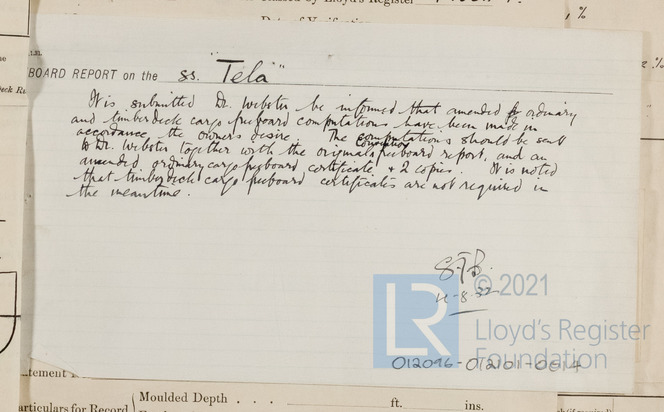 Lloyd's Register
%
Date of Verification
BOARD REPORT on the ss. "Tela"
It is submitted Dr. Webster be informed that amended ordinary
and timberdeck cargo freeboard computations have been made in
accordance, the owners desire. The computations should be sent
to Dr. Webster together with the original freeboard report, and an
amended, ordinary cargo freeboard certificate, + 2 copies. It is noted
that timberdeck cargo freeboard certificates are not required in
the meantime.
-8-32
LR
© 2021
Lloyd's Register
Foundation
012096-012101-0614
tement
articulars for Record
Moulded Depth . . . ft. ins.